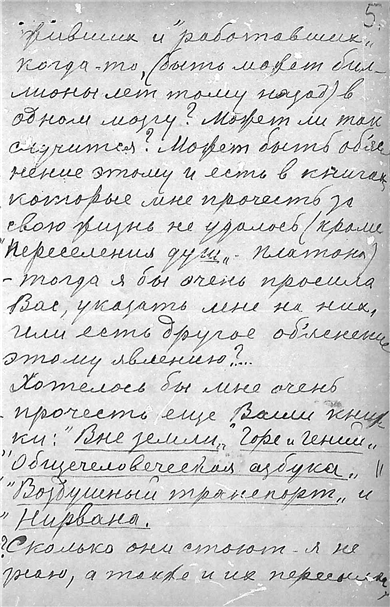 5.
живших и "работавших"
когда-то, (быть может бил-
лионы лет тому назад) в
одном мозгу? Может ли так
случится? Может быть об'яс
нение этому и есть в книгах
которые мне прочесть за
свою жизнь не удалось (кроме
"Переселения душ" - Платона)
- тогда я бы очень просила
Вас, указать мне на них,
или есть другое об'яснение
этому явлению?...
Хотелось бы мне очень
прочесть еще Ваши книж
ки: "Вне земли" "Горе и гений"
"Общечеловеческая азбука" "
"Воздушный транспорт" и
"Нирвана.
Сколько они стоют - я не
знаю, а также и их пересылка,